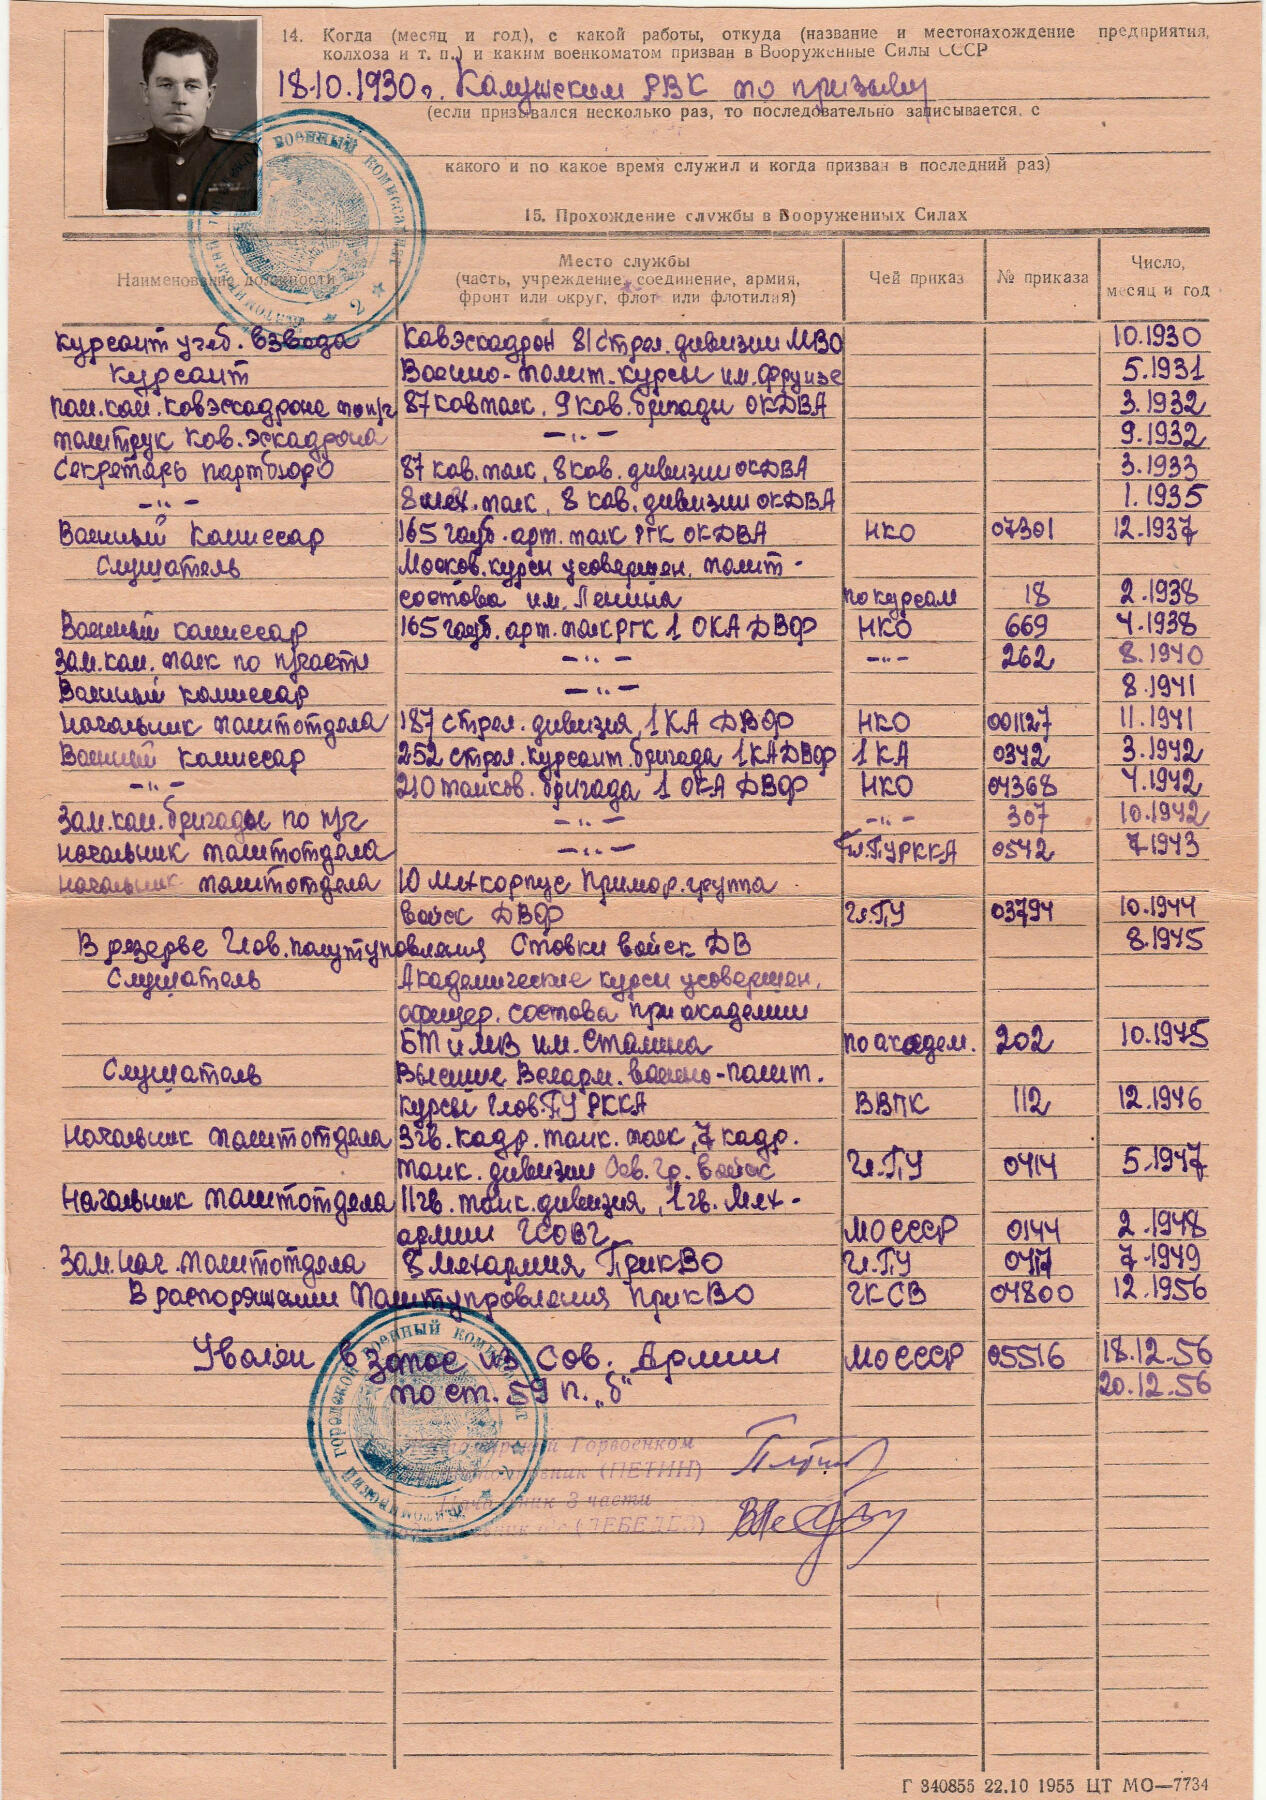 14. Когда (месяц и год), с какой работы, откуда (название и местонахождение предприятия,
колхоза и т. п.) и каким военкоматом призван в Вооруженные Силы СССР
18.10.1930г. Калужским РВК по призыву
(если призывался несколько раз, то последовательно записывается, с
какого и по какое время служил и когда призван в последний раз)
15. Прохождение службы в Вооруженных Силах
Наименование должности
Место службы
(часть, учреждение, соединение, армия,
фронт или округ, флот или флотилия)
Чей приказ
№ приказа
Число,
месяц и год
Курсант учеб. взвода Кавэскадрон 81 стрел. дивизии МВО 10.1930
Курсант Военно-полит. курсы им. Фрунзе 5.1931
пом. ком. кавэскадрона по п/ч 87 кав полк, 9 кав. бригады ОКДВА 3.1932
политрук кав. эскадрона —"— 9.1932
Секретарь партбюро 87 кав. полк, 8 кав. дивизии ОКДВА 3.1933
—"— 8 мех. полк, 8 кав. дивизии ОКДВА 1.1935
Военный комиссар 165 гауб. арт. полк РГК ОКДВА НКО 07301 12.1937
Слушатель Москов. курсы усовершен. полит-
состава им. Ленина по курсам 18 2.1938
Военный комиссар 165 гауб. арт. полк РГК 1 ОКА ДВФ НКО 669 4.1938
Зам. ком. полк по п/части —"— —"— 262 8.1940
Военный комиссар —"— 8.1941
Начальник политотдела 187 стрел. дивизия, 1 КА ДВФ НКО 001127 11.1941
Военный комиссар 252 стрел. курсант. бригада 1 КА ДВФ 1 КА 0342 3.1942
—"— 210 танков. бригада 1 ОКА ДВФ НКО 04368 4.1942
Зам. ком. бригады по п/ч —"— —"— 307 10.1942
Начальник политотдела —"— Гл. ПУРККА 0542 7.1943
Начальник политотдела 10 мехкорпус Примор. группа
войск ДВФ Гл. ПУ 03794 10.1944
В резерве Глав. политуправления Ставки войск ДВ 8.1945
Слушатель Академические курсы усовершен.
офицер. состава при академии
БТ и МВ им. Сталина по академ. 202 10.1945
Слушатель Высшие Всеарм. военно-полит.
курсы Глав. ПУ РККА ВВПК 112 12.1946
Начальник политотдела 3 гв. кадр. танк. полк, 7 кадр.
танк. дивизии Сев. гр. войск Гл. ПУ 0414 5.1947
Начальник политотдела 11 гв. танк. дивизия, 1 гв. мех-
армии ГСОВГ МО СССР 0144 2.1948
Зам. нач. политотдела 8 мехармия ПрикВО Гл. ПУ 0417 7.1949
В распоряжении Политуправления ПрикВО ГКСВ 04800 12.1956
Уволен в запас из Сов. Армии МО СССР 05516 18.12.56
по ст. 59 п. „б" 20.12.56
Горвоенком
(ПЕТИН)
Начальник 3 части
(ЛЕБЕДЕВ)
Г 340855 22.10 1955 ЦТ МО—7734